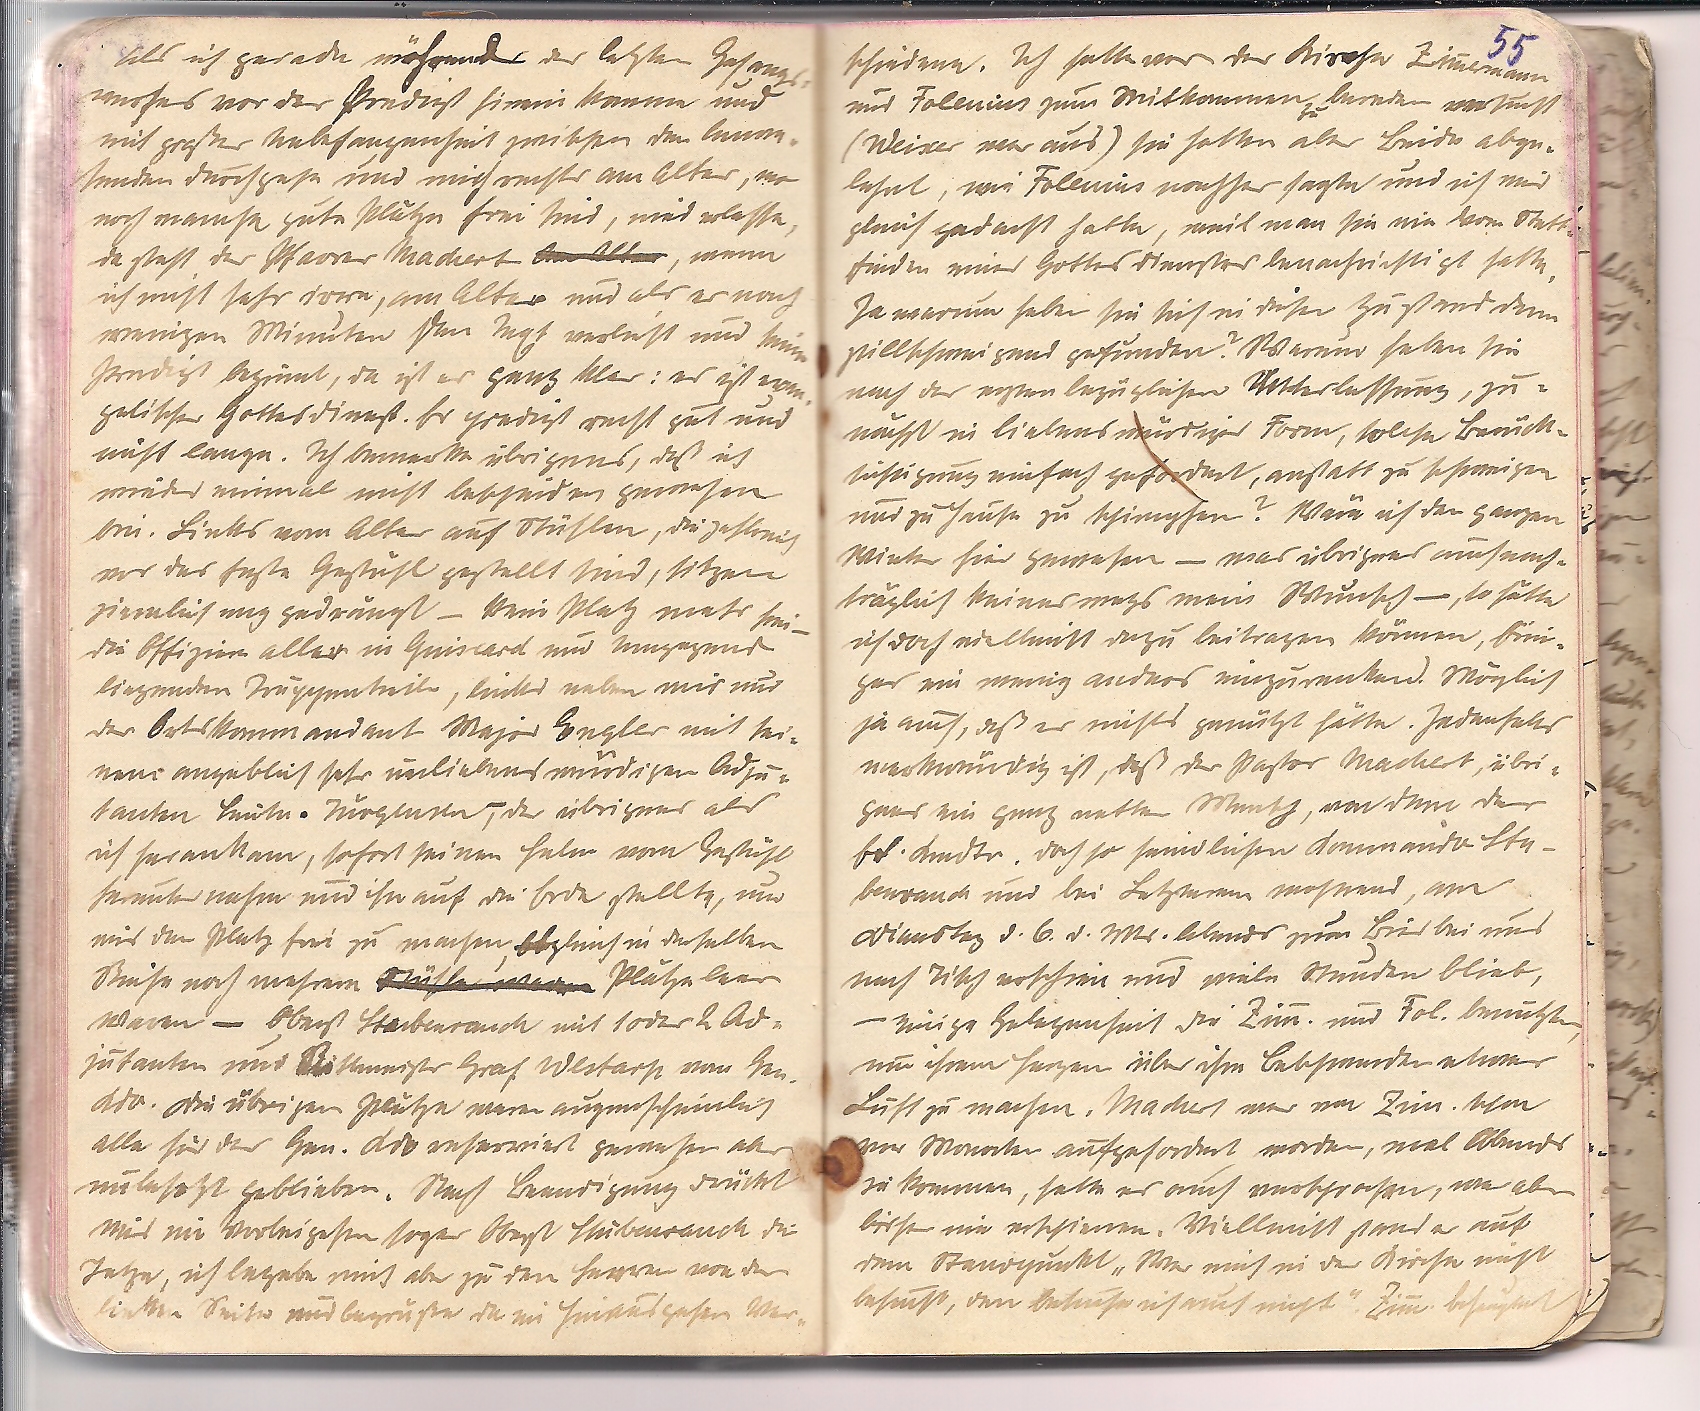 Als ich gerade während der letzten Gesangs-
verses vor der Predigt hinein komme und
mit größter Unbefangenheit zwischen den Anwe-
senden durchgehe und mich rechts am Altar, wo
noch manche gute Plätze frei sind, niederlasse,
da steht der Pfarrer Machert am Altar, wenn
ich nicht sehr irre, am Altar und als er nach
wenigen Minuten den Text verliest und seine
Predigt beginnt, da ist es ganz klar: es ist evan-
gelischer Gottesdienst. Er predigt recht gut und
nicht lange. Ich bemerke übrigens, daß ich
wieder einmal nicht bescheiden gewesen
bin. Links vom Altar auf Stühlen, die zahlreich
vor das feste Gestühl gestellt sind, sitzen
ziemlich eng gedrängt – kein Platz mehr frei –
die Offiziere aller in Guiscard und Umgegend
liegenden Truppenteile, links neben mir nur
der Ortskommandant Major Engler mit sei-
nem angeblich sehr unliebenswürdigen Adju-
tanten Leutn. , der übrigens als
ich herankam, sofort seinen Helm vom Gestühl
herunter nahm und ihn auf die Erde stellte, um
mir den Platz frei zu machen, obgleich in derselben
Reihe noch mehrere Stühle waren Plätze leer
waren – Oberst Stubenrauch mit 1 oder 2 Ad-
jutanten und Rittmeister Graf Westarp vom Gen.
Kdo. Die übrigen Plätze waren augenscheinlich
alle für das Gen. Kdo reserviert gewesen aber
unbesetzt geblieben. Nach Beendigung drückt
mir im Vorbeigehen sogar Oberst Stubenrauch die
Tatze, ich begebe mich aber zu den Herren von der
linken Seite und begrüße da im Hinausgehen Ver-
55
schiedene. Ich hatte vor der Kirche Zimmermann
und Follenius zum Mitkommen zu bereden versucht
(Weixer war aus) sie hatten aber Beide abge-
lehnt, wie Follenius nachher sagte und ich mir
gleich gedacht hatte, weil man sie nie vom Statt-
finden eines Gottesdienstes benachrichtigt hatte.
Ja warum haben sie sich in diesen Zustand denn
stillschweigend gefunden? Warum haben sie
nach der ersten bezüglichen Unterlassung, zu-
nächst in liebenswürdiger Form, solche Berück-
sichtigung einfach gefordert, anstatt zu schweigen
und zu Hause zu schimpfen? Wäre ich den ganzen
Winter hier gewesen – was übrigens auch nach-
träglich keineswegs mein Wunsch –, so hätte
ich doch vielleicht dazu beitragen können, Eini-
ges ein wenig anders einzurenken. Möglich
ja auch, daß es nichts genützt hätte. Jedenfalls
merkwürdig ist, daß der Pastor Machert, übri-
gens ein ganz netter Mensch, von dem den
Kmdtr. doch so feindlichen Kommando Stu-
benrauch und bei Letzterem wohnend, am
Dienstag d. 6. d. Mts. Abends zum Bier bei uns
nach Tisch erschien und viele Stunden blieb,
– einige Gelegenheit die Zim. und Fol. benutzten,
um ihrem Herzen über ihre Beschwerden etwas
Luft zu machen. Machert war von Zim. schon
vor Monaten aufgefordert worden, mal Abends
zu kommen, hatte es auch versprochen, war aber
bisher nie erschienen. Vielleicht stand er auf
dem Standpunkt „Wer mich in der Kirche nicht
besucht, den besuche ich auch nicht“. Zim.